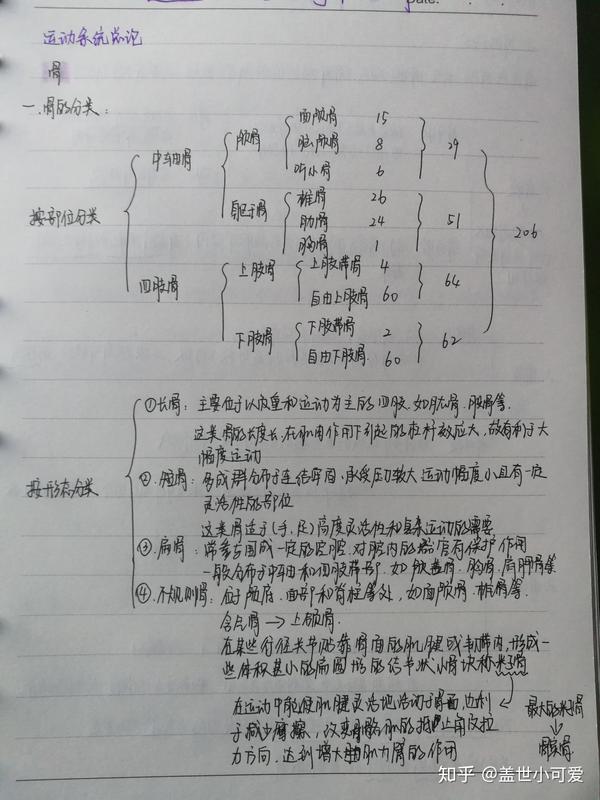 运动系统总论
骨
一.骨的分类:
面颅骨 15
中轴骨 颅骨 脑颅骨 8 29
听小骨 6
躯干骨 椎骨 26
按部位分类 肋骨 24 51 206
胸骨 1
四肢骨 上肢骨 上肢带骨 4 64
自由上肢骨 60
下肢骨 下肢带骨 2 62
自由下肢骨 60
①长骨: 主要位于以支重和运动为主的四肢.如肱骨.股骨等.
这类骨的长度长,在肌肉作用下引起的杠杆效应大,故有利于大
幅度运动
按形态分类
②短骨: 多成群分布于连结牢固,承受压力较大 运动幅度小且有一定
灵活性的部位
这类骨适于(手,足)高度灵活性和复杂运动的需要
③扁骨: 常参与围成一定的空腔,对腔内的器官有保护作用
一般分布于中轴和四肢带部.如 胸骨.肩胛骨等
④.不规则骨: 位于颅底.面部和脊柱等处,如面颅骨.椎骨等.
含气骨→上颌骨
在某些 关节 靠骨面的肌腱或韧带内,形成一
些体积甚小的扁圆形的结节状小骨块称籽骨
在运动中能使肌腱灵活地活动于骨面,
于减少摩擦,改变骨骼肌的 角度拉
力方向,达到增大 肌力 的作用
最大的籽骨
↓
髌骨.
知乎 @盖世小可爱